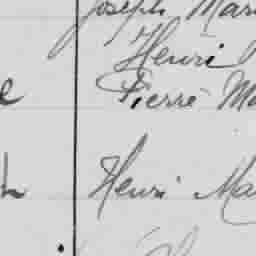 Joseph Mar
Henri
Pierre Ma
Henri Ma